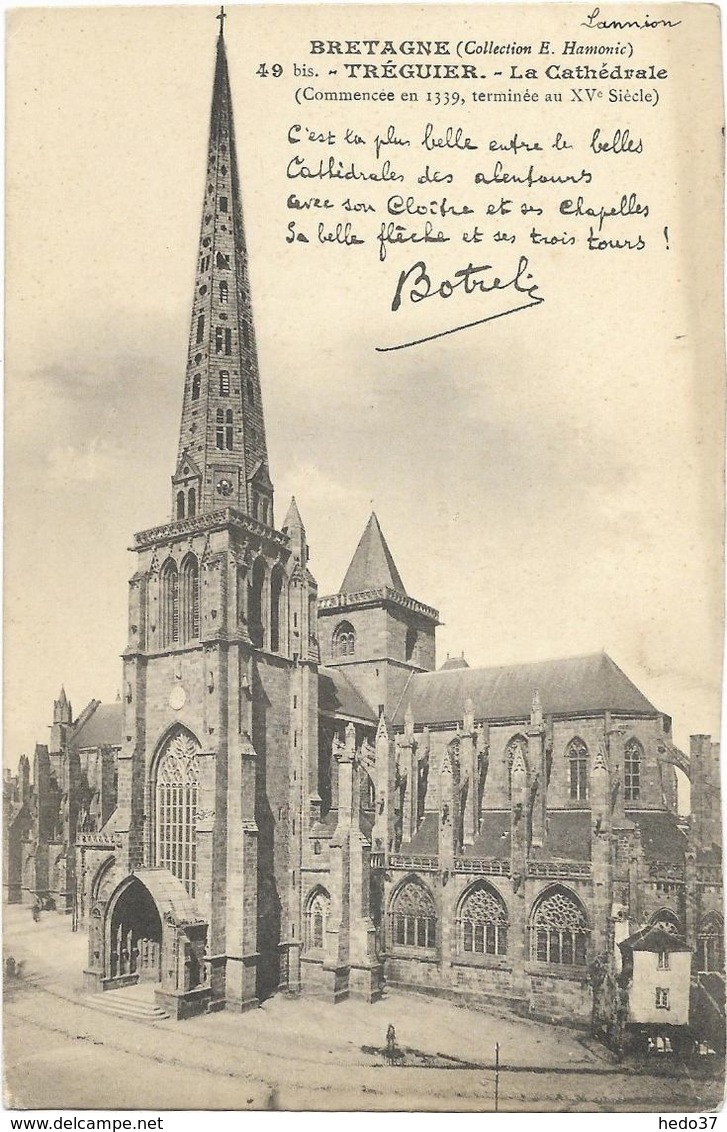 Lannion
BRETAGNE (Collection E. Hamonic)
49 bis. - TRÉGUIER. - La Cathédrale
(Commencée en 1339, terminée au XVe Siècle)
C'est la plus belle entre les belles
Cathédrales des alentours
avec son Cloître et ses Chapelles
Sa belle flèche et ses trois tours !
Botrel
hedo37